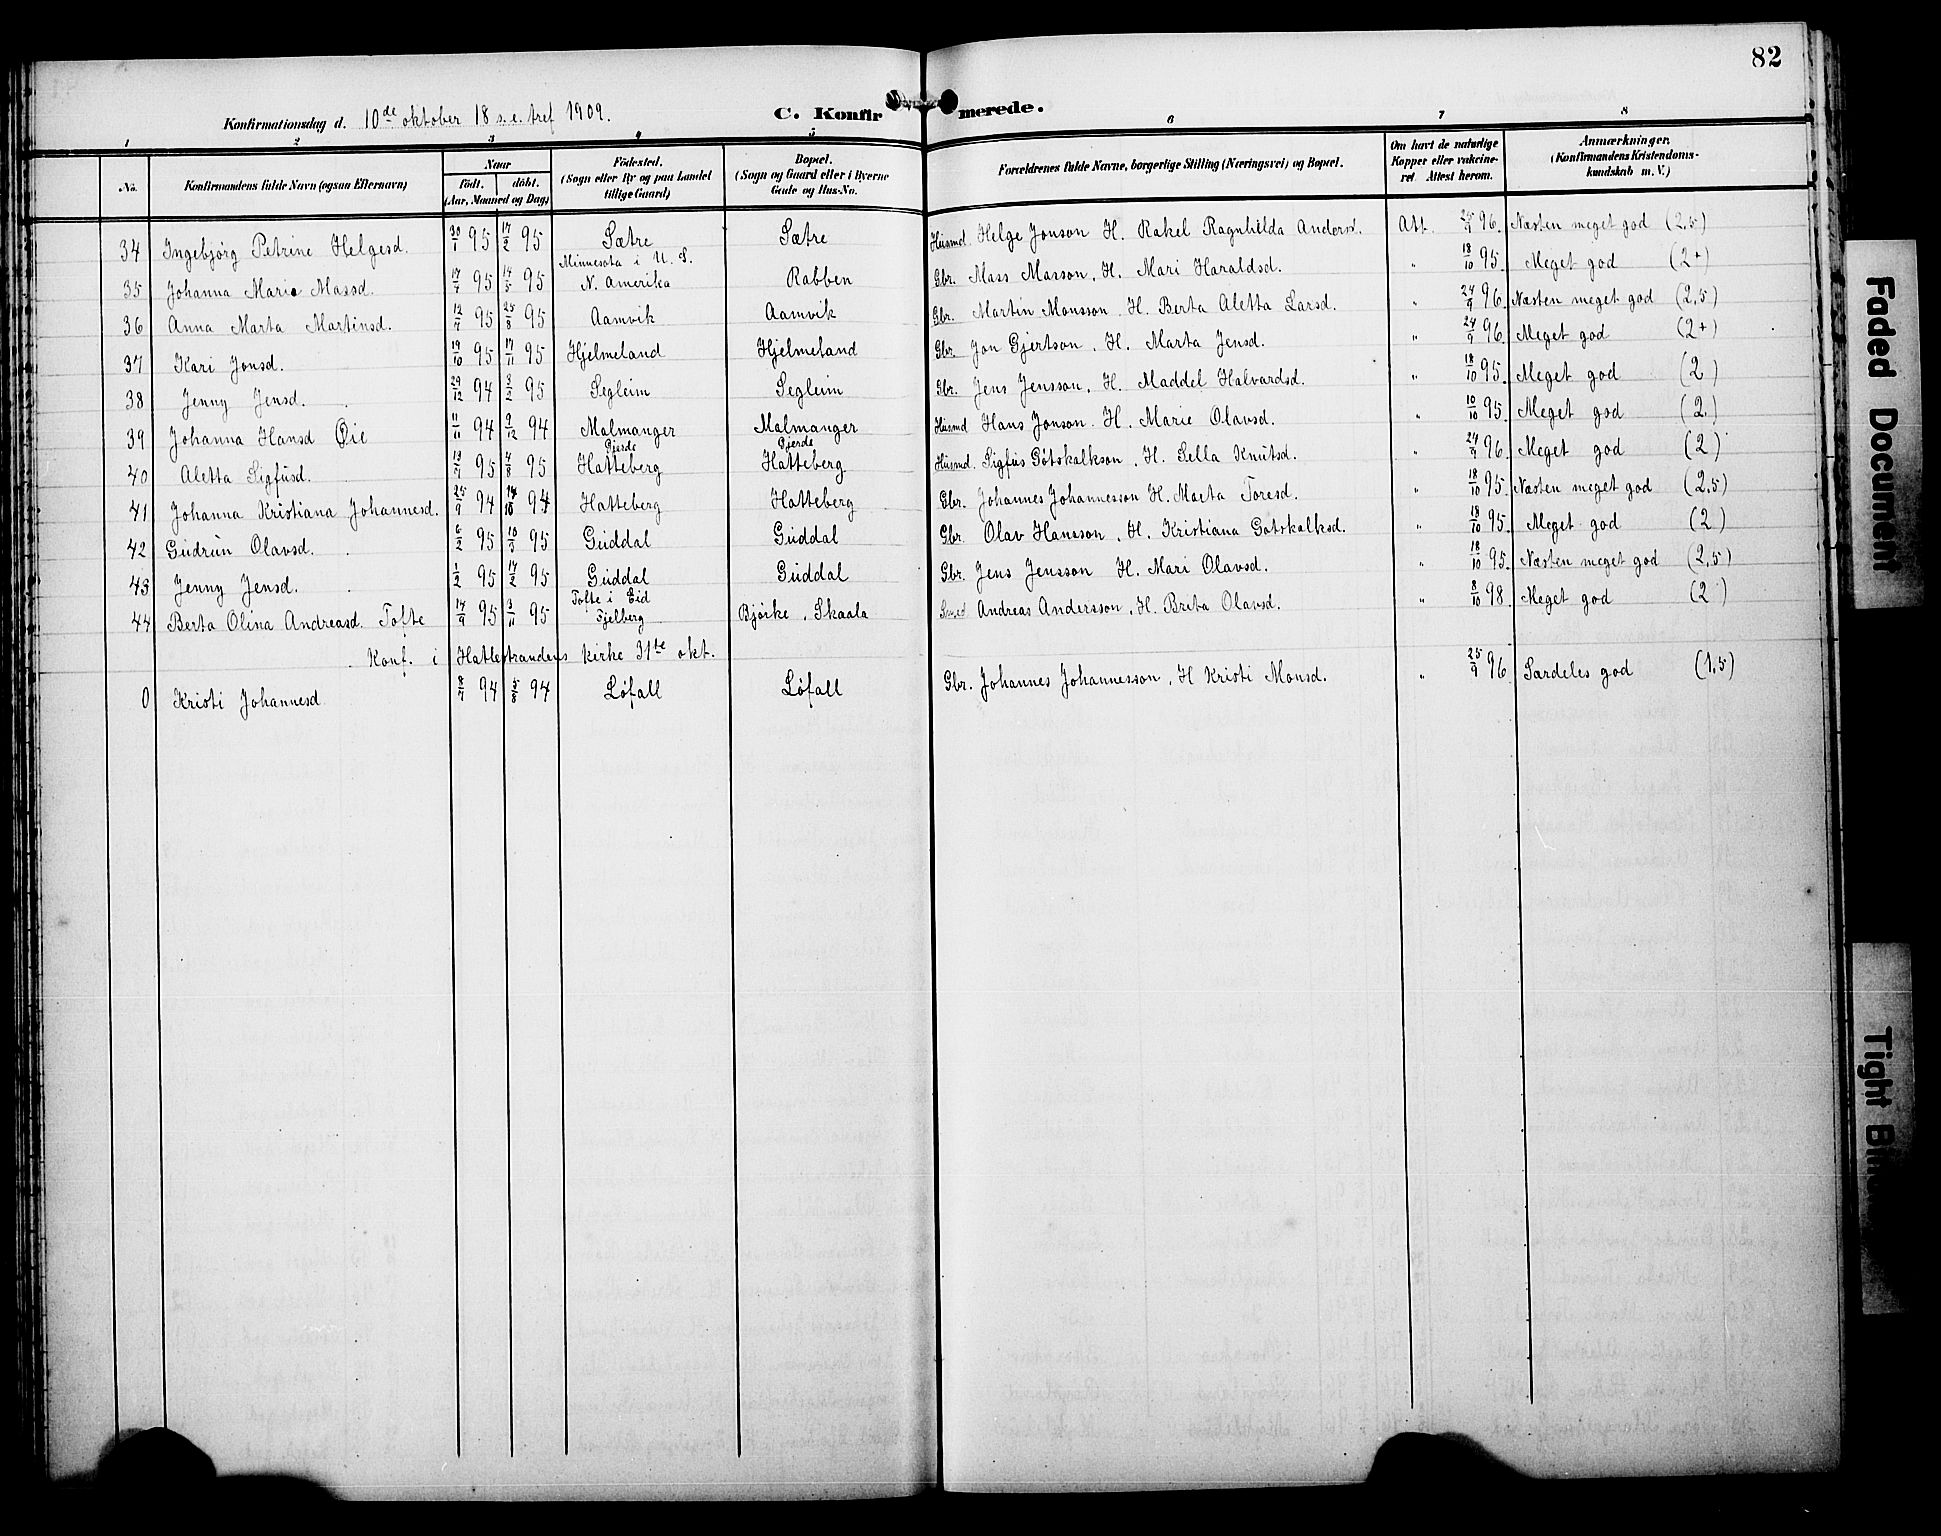 82
Konfirmationsdag d. 10de oktober 18 s. e. tref 1909.
C. Konfirmerede.
1 2 3 4 5 6 7 8
No. Konfirmandens fulde Navn (ogsaa Efternavn) Naar födt. döbt. (Aar, Maaned og Dag) Födested. (Sogn eller By og paa Landet tillige Gaard) Bopæl. (Sogn og Gaard eller i Byerne Gade og Hus-No. Forældrenes fulde Navne, borgerlige Stilling (Næringsvei) og Bopæl. Om havt de naturlige Kopper eller vakcineret Attest herom. Anmærkninger. (Konfirmandens Kristendomskundskab m. V.)
34 Ingebjørg Petrine Helgesd. 30/1 95 17/2 95 Sætre Sætre Husmd Helge Jonson H. Rakel Ragnhilda Andersd. Att. 25/9 96. Næsten meget god (2,5)
35 Johanna Marie Massd. 17/7 95 14/5 95 Minnesota i U. S. N. Amerika Rabben Gbr. Mass Masson, H. Mari Haraldsd. " 18/10 95. Meget god (2+)
36 Anna Marta Martinsd. 12/7 95 25/8 95 Aamvik Aamvik Gbr. Martin Monsson, H. Berta Aletta Larsd. " 24/9 96. Næsten meget god (2,5)
37 Kari Jonsd. 19/10 95 17/11 95 Hjelmeland Hjelmeland Gbr. Jon Gjertson, H. Marta Jensd. " 24/9 96. Meget god (2+)
38 Jenny Jensd. 29/12 94 3/2 95 Segleim Segleim Gbr. Jens Jensson, H. Maddel Halvardsd. " 18/10 95. Meget god (2)
39 Johanna Hansd Øie 11/11 94 9/12 94 Malmanger Malmanger Husmd Hans Jonson. H. Marie Olavsd. " 10/10 95. Meget god (2.)
40 Aletta Sigfusd. 13/7 95 4/8 95 Gjerde Hatteberg Gjerde Hatteberg Husmd. Sigfus Gøtskalkson, H. Sella Knutsd. " 24/9 96. Meget god (2)
41 Johanna Kristiana Johannesd. 25/9 94 14/10 94 Hatteberg Hatteberg Gbr. Johannes Johannesson H. Marta Toresd. " 18/10 95. Næsten meget god (2,5)
42 Gudrun Olavsd. 6/2 95 10/3 95 Guddal Guddal Gbr. Olav Hansson, H. Kristiana Gotskalksd. " 18/10 95. Meget god (2)
43 Jenny Jensd. 1/2 95 17/2 95 Guddal Guddal Gbr. Jens Jensson H. Mari Olavsd. " 18/10 95. Næsten meget god (2,5)
44 Berta Olina Andreasd. Tofte 14/9 95 3/11 95 Tofte i Eid Fjelberg Bjørke, Skaala Smed Andreas Andersson, H. Brita Olavsd. " 8/10 98. Meget god (2)
Konf. i Hatlestrandens kirke 31te okt.
0 Kristi Johannesd 8/7 94 5/8 94 Løfall Løfall Gbr. Johannes Johannesson, H Kristi Monsd. " 25/9 96 Særdeles god (1,5)
Faded Document
Tight Bin